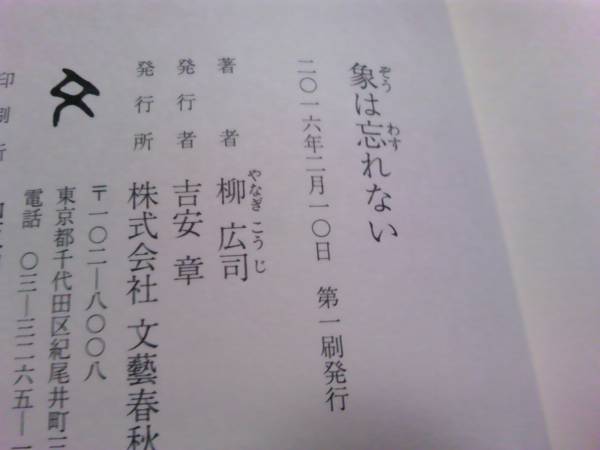 象は忘れない
ぞう
わす
二〇一六年二月一〇日　第一刷発行
著者　柳広司
やなぎこうじ
発行者　吉安章
発行所　株式会社 文藝春秋
〒一〇二―八〇〇八
東京都千代田区紀尾井町三
電話　〇三―三二六五―一
印刷所